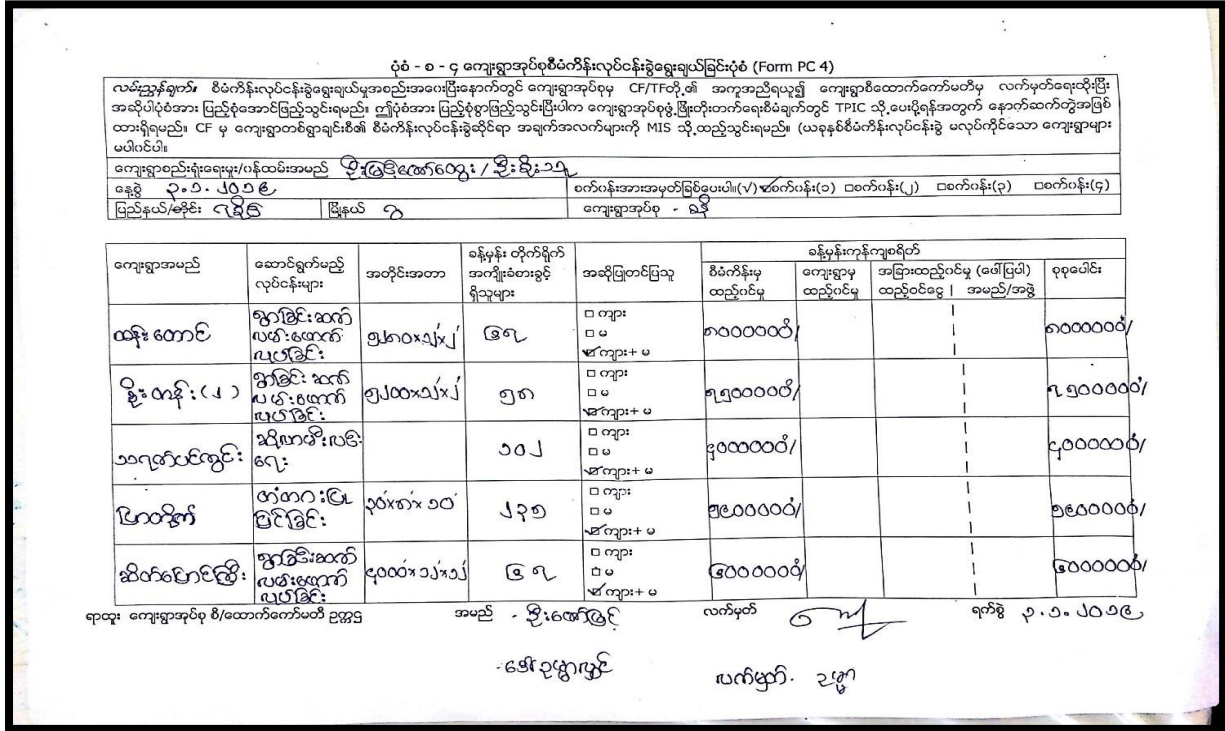 ပုံစံ - စ - ၄ ကျေးရွာအုပ်စုစီမံကိန်းလုပ်ငန်းခွဲရွေးချယ်ခြင်းပုံစံ (Form PC 4)
လမ်းညွှန်ချက်။ စီမံကိန်းလုပ်ငန်းခွဲရွေးချယ်မှုအစည်းအဝေးပြီးနောက်တွင် ကျေးရွာအုပ်စုမှ CF/TFတို့၏ အကူအညီရယူ၍ ကျေးရွာစီထောက်ကော်မတီမှ လက်မှတ်ရေးထိုးပြီး
အဆိုပါပုံစံအား ပြည့်စုံအောင်ဖြည့်သွင်းရမည်။ ဤပုံစံအား ပြည့်စုံစွာဖြည့်သွင်းပြီးပါက ကျေးရွာအုပ်စုဖွံ့ဖြိုးတိုးတက်ရေးစီမံချက်တွင် TPIC သို့ပေးပို့ရန်အတွက် နောက်ဆက်တွဲအဖြစ်
ထားရှိရမည်။ CF မှ ကျေးရွာတစ်ရွာချင်းစီ၏ စီမံကိန်းလုပ်ငန်းခွဲဆိုင်ရာ အချက်အလက်များကို MIS သို့ထည့်သွင်းရမည်။ (ယခုနှစ်စီမံကိန်းလုပ်ငန်းခွဲ မလုပ်ကိုင်သော ကျေးရွာများ
မပါဝင်ပါ။
ကျေးရွာစည်းရုံးရေးမှူး/ဝန်ထမ်းအမည်
နေ့စွဲ ၃.၁.၂၀၁၉ စက်ဝန်းအားအမှတ်ခြစ်ပေးပါ။(√) ☑စက်ဝန်း(၁) □စက်ဝန်း(၂) □စက်ဝန်း(၃) □စက်ဝန်း(၄)
ပြည်နယ်/တိုင်း ရခိုင် မြို့နယ် ဂွ ကျေးရွာအုပ်စု -
ကျေးရွာအမည် ဆောင်ရွက်မည့် လုပ်ငန်းများ အတိုင်းအတာ ခန့်မှန်း တိုက်ရိုက် အကျိုးခံစားခွင့် ရှိသူများ အဆိုပြုတင်ပြသူ ခန့်မှန်းကုန်ကျစရိတ်
စီမံကိန်းမှ ထည့်ဝင်မှု ကျေးရွာမှ ထည့်ဝင်မှု အခြားထည့်ဝင်မှု (ဖော်ပြပါ) ထည့်ဝင်ငွေ | အမည်/အဖွဲ့ စုစုပေါင်း
ထန်းတောင် ရွာခြင်းဆက် လမ်းဖောက် လုပ်ခြင်း ၆၇ □ ကျား □ မ ☑ ကျား+ မ ၈၀၀၀၀၀၀/ ၈၀၀၀၀၀၀/
အိုးတန်း(၂) ရွာခြင်းဆက် လမ်းဖောက် လုပ်ခြင်း ၅၂၀၀×၁၂×၂ ၅၈ □ ကျား □ မ ☑ ကျား+ မ ၇၅၀၀၀၀၀/ ၇၅၀၀၀၀၀/
သရက်ပင်ကွင်း ဆိုလာမီးလင်း ရေး ၁၀၂ □ ကျား □ မ ☑ ကျား+ မ ၄၀၀၀၀၀၀/ ၄၀၀၀၀၀၀/
ပြာတိုက် တံတားပြု ပြင်ခြင်း ၃၀×၈×၁၀ ၂၃၅ □ ကျား □ မ ☑ ကျား+ မ
ဆိတ်ပြောင်ကြီး ရွာခြင်းဆက် လမ်းဖောက် လုပ်ခြင်း ၄၀၀၀×၁၂×၁၂ ၆၇ □ ကျား □ မ ☑ ကျား+ မ ၆၀၀၀၀၀၀/ ၆၀၀၀၀၀၀/
ရာထူး ကျေးရွာအုပ်စု စီ/ထောက်ကော်မတီ ဥက္ကဋ္ဌ အမည် - ဦးဇော်မြင့် လက်မှတ် ရက်စွဲ ၃.၁.၂၀၁၉
- ဒေါ်ဥမ္မာလွင် လက်မှတ်. ဥမ္မာ